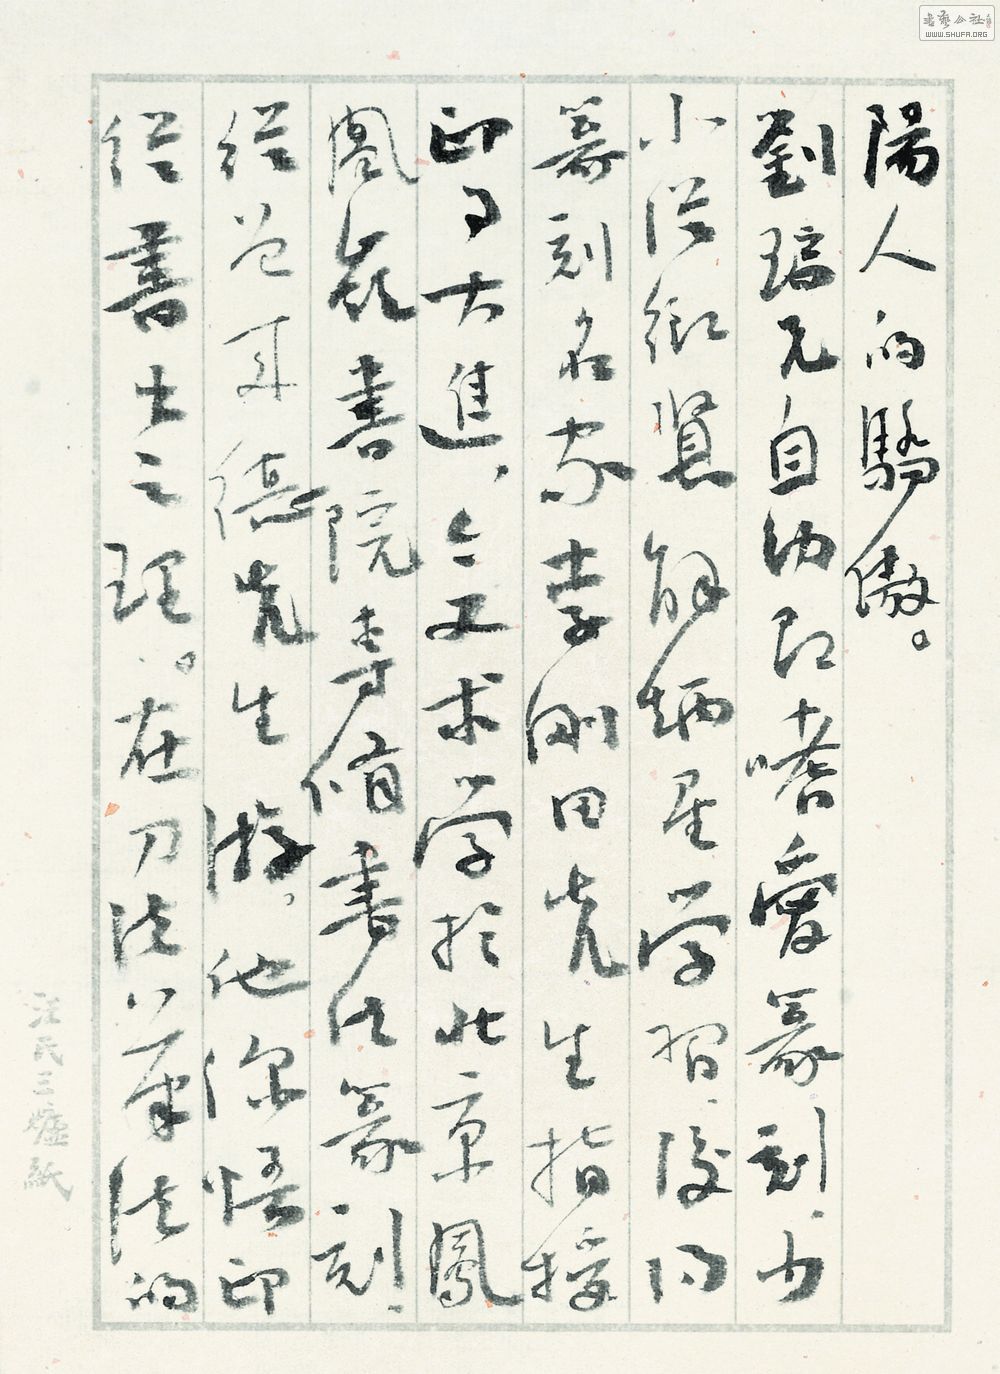 陽人的驕傲。
劉瑞元自幼即嗜愛篆刻，少
小從鄉賢解炳星學習，後得
篆刻名家李剛田先生指授
印事大進，今又求学於北京鳳
凰嶺書院專脩書法篆刻，
從曾来德先生游。他深悟印
從書出之理。在刀法、筆法的
汪氏三爐紙
書藝公社
WWW.SHUFA.ORG